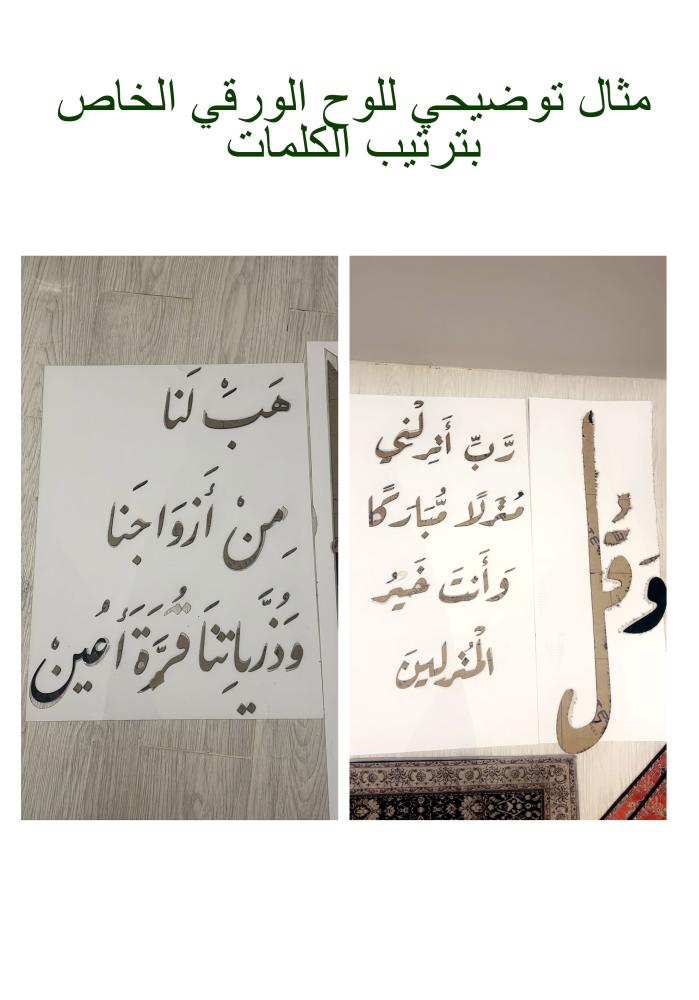 مثال توضيحي للوح الورقي الخاص
بترتيب الكلمات
وَقُل
رَّبِّ أَنزِلْنِي
مُنزَلًا مُّبَارَكًا
وَأَنتَ خَيْرُ
الْمُنزِلِينَ
هَبْ لَنَا
مِنْ أَزْوَاجِنَا
وَذُرِّيَّاتِنَا قُرَّةَ أَعْيُنٍ